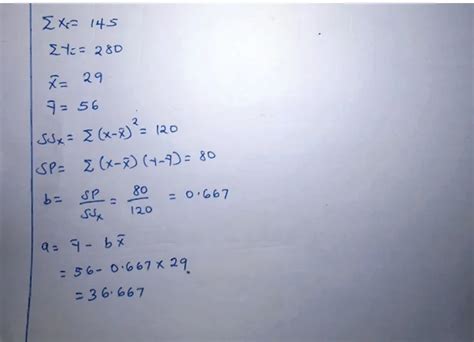 Σxᵢ = 145
Σyᵢ = 280
x̄ = 29
ȳ = 56
SSₓ = Σ(x-x̄)² = 120
SP = Σ(x-x̄)(y-ȳ) = 80
b = SP/SSₓ = 80/120 = 0.667
a = ȳ - bx̄
= 56 - 0.667 × 29
= 36.667